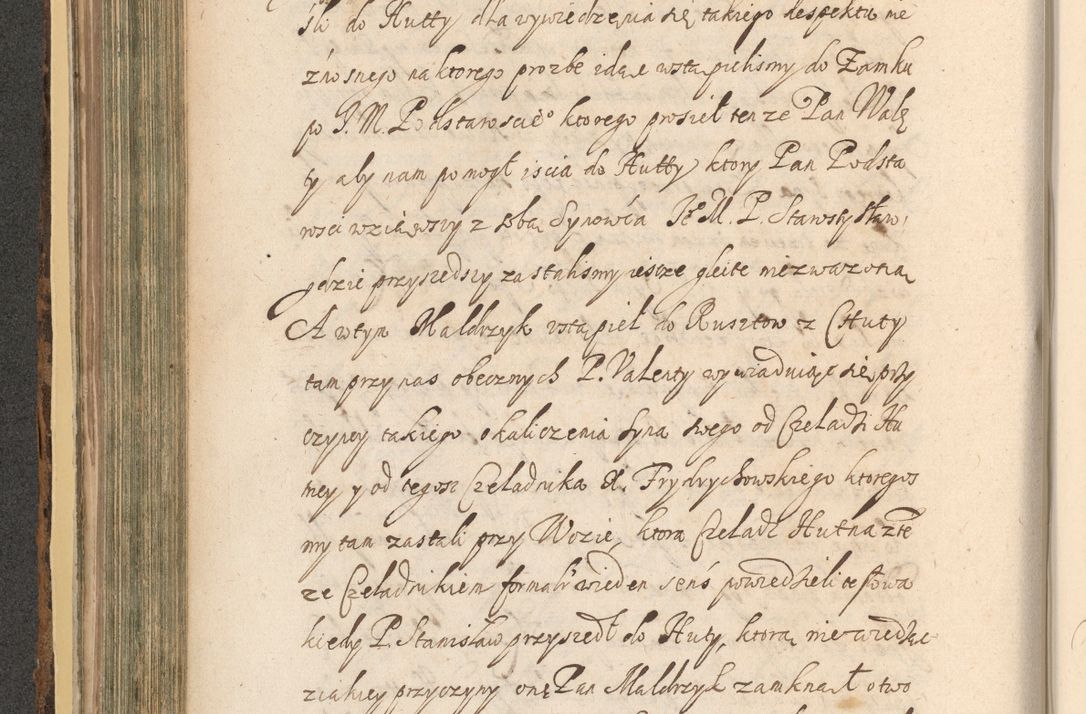 śli do Hutty dla wywiedzenia się takiego despektu nie
znosnego na ktorego prozbe idąc wstąpielismy do Zamku
po J. M. P. Podstarosciᵒ ktorego prosieł tenze Pan Walę
ty aby nam pomogł iscia do Hutty ktory Pan Podsta
rosci wziąwszy z sobą Synowca Jᵒ M. P. Starosty
gdzie przyszedszy zastalismy ieszcze gleite niezwazoną
A wtym Maldrzyk wstąpieł do Rusztow z Chuty
tam przy nas obecznych P. Valenty wywiaduiąc się przy
czyney takiego okaliczenia syna swego od Czeladzi Hu
tney y od tegosz Czeladnika X. Frydrychowskiego ktoregos
my tam zastali przy Wozie, ktora Czeladz Hutna zte
ze Czeladnikiem wieden sens powiedzieli te słowa
kiedy P. Stanisław przyszedł do Huty, ktorą niewiedziec
ziakiey przyczyny onę Pan Maldrzyk zamknął otwo